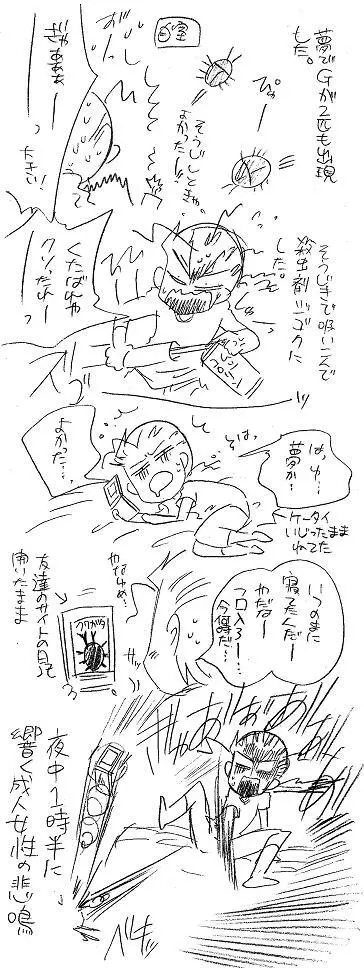 夢でGが2匹も出現
した。
自室
ぴゅー
そうじしときゃ
よかったー!!
ぎゃああぁーっ
大きい!
そうじきで吸いこんで
殺虫剤ジゴクに
した。
くたばれや
クソったれーっ
はっ、ゆ…
夢か…
よかった…。
←ケータイ
いじったまま
ねてた
いつのまに
寝てたんだー
やだなー
フロ入ろー…
今何時だ…
やなゆめ…
友達のサイトの日記
開いたまま
クワガタ
あ゛あ゛あ゛あ゛
夜中1時半に
響く成人女性の悲鳴